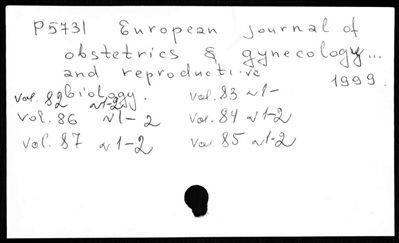 P5731 European journal of
obstetrics & gynecology...
and reproductive
biology. 1999
vol. 82 N1-2 vol. 83 N1-
vol. 86 N1-2 vol. 84 N1-2
vol. 87 N1-2 vol. 85 N1-2